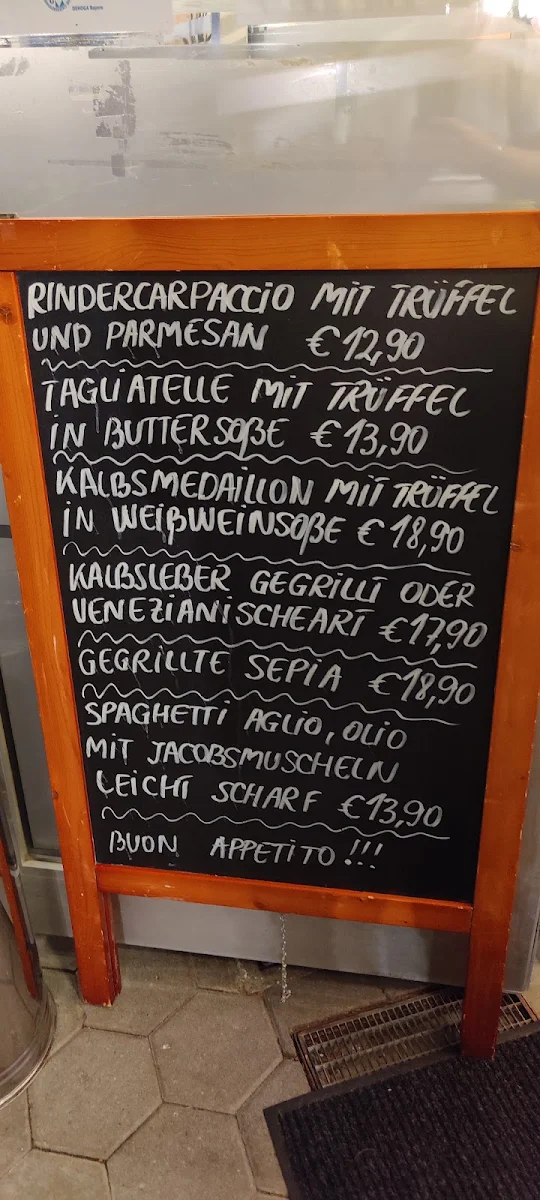 RINDERCARPACCIO MIT TRÜFFEL
UND PARMESAN €12,90
TAGLIATELLE MIT TRÜFFEL
IN BUTTERSOßE €13,90
KALBSMEDAILLON MIT TRÜFFEL
IN WEIßWEINSOßE €18,90
KALBSLEBER GEGRILLT ODER
VENEZIANISCHEART €17,90
GEGRILLTE SEPIA €18,90
SPAGHETTI AGLIO, OLIO
MIT JACOBSMUSCHELN
LEICHT SCHARF €13,90
BUON APPETITO!!!